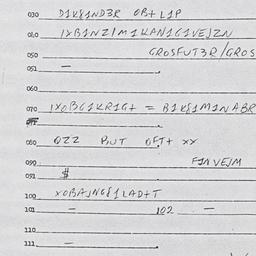 030 D1K§1ND3R OB+ L1P
040 1XB1NZ/M1KAN1G1VEJZN
050 GROSFUT3R/GROS
051 —
060
070 1XOBG1KR1G+ = B1K§1M1NABR
080 QZZ BUT OFT+ XX
090 F1NVEJM
091 $
100 XOBAJNG§1LAD+T
101 — 102 —
110
111 —